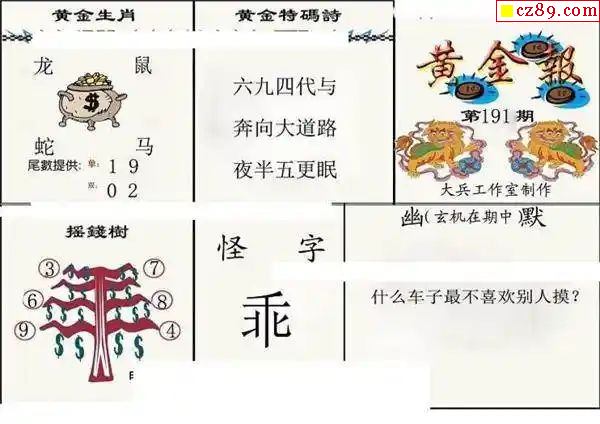 黄金生肖
龙 鼠
蛇 马
尾數提供: 单: 1 9
双: 0 2
黄金特碼詩
六九四代与
奔向大道路
夜半五更眠
cz89.com
黄金報
第191期
大兵工作室制作
摇錢樹
③ ⑦
⑥ ⑧
⑨ ④
怪 字
乖
幽(玄机在期中)默
什么车子最不喜欢别人摸？